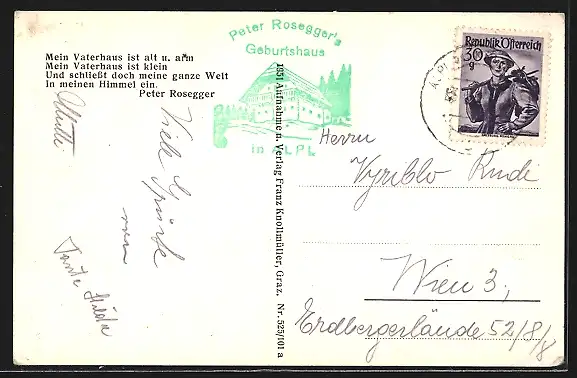 Mein Vaterhaus ist alt u. arm
Mein Vaterhaus ist klein
Und schließt doch meine ganze Welt
In meinen Himmel ein.
Peter Rosegger
Mutti
Viele Grüße
Tante Hilda
Peter Rosegger's
Geburtshaus
in ALPL
1851 Aufnahme u. Verlag Franz Knollmüller, Graz. Nr. 525/101 a
Republik Österreich
30
g
Herrn
Rudi
Wien 3,
Erdbergerlände 52/8/8